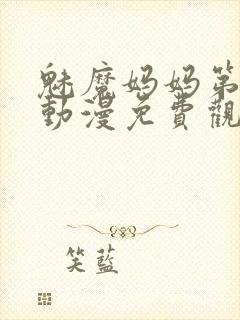 魅魔妈妈第
動漫免費觀
笑藍